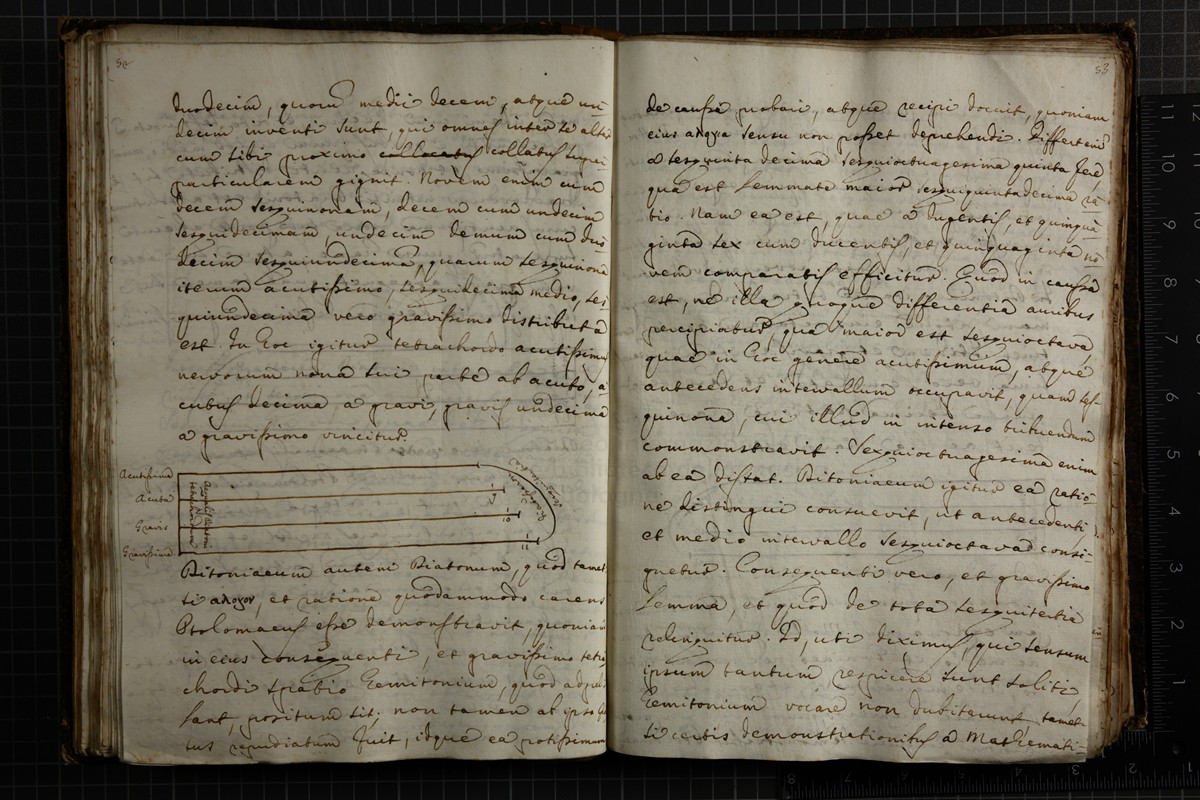 52
duodecim, quorū medii decem, atque un-
decim inventi sunt, qui omnes inter se alter
cum sibi proximo collatus super
particularem gignit. Novem enim cum
decem sesquinonam, decem cum undecim
sesquidecimam, undecim demum cum duo
decim sesquiundecimā, quarum sesquinona
iterum acutissimo, sesquidecima medio, ses
quiundecima vero gravissimo distributa
est. In hoc igitur tetrachordo acutissimus
nervorum nona sui parte ab acuto, a
cutus decima a gravi, gravis undecima
a gravissimo vincitur.
Acutissima
Acuta
Gravis
Gravissima
9
10
11
Ditoniaeum autem Diatonum, quod tamet
si αλογον, et ratione quodammodo carens
Ptolomaeus esse demonstravit, quoniam
in eius consequenti, et gravissimo tetra
chordi spatio hemitonium, quod adpel
lant, positum sit; non tamen ab ipso
tus repudiatum fuit, idque ea potissimum
53
de causa probari, atque recipi docuit, quoniam
eius αλογια sensu non posset deprehendi. Differentia
a sesquinta decima sesquioctuagesima quinta fere
qua est lemmate maior sesquiquintadecima ra
tio. Nam ea est, quae a ducentis, et quinqua
ginta sex cum ducentis, et quinquaginta no
vem comparatis efficitur. Quod in causa
est, ne illa quoque differentia auribus
percipiatur, qua maior est sesquioctava
quae in hoc genere acutissimum, atque
antecedens intervallum occupavit, quam ses-
quinona, cui illud in intenso tribuendum
commonstravit. Sexquioctuagesima enim
ab ea distat. Ditoniaeum igitur ea ratio-
ne distingui consuevit, ut antecedenti,
et medio intervallo sesquioctava consi-
gnetur. Consequenti vero, et gravissimo
lemma, et quod de tota sesquitertia
relinquitur. Id, uti diximus, qui sensum
ipsum tantum respicere sunt soliti
hemitonium vocare non dubiterunt, tamet
si certis demonstrationibus a Mathemati-